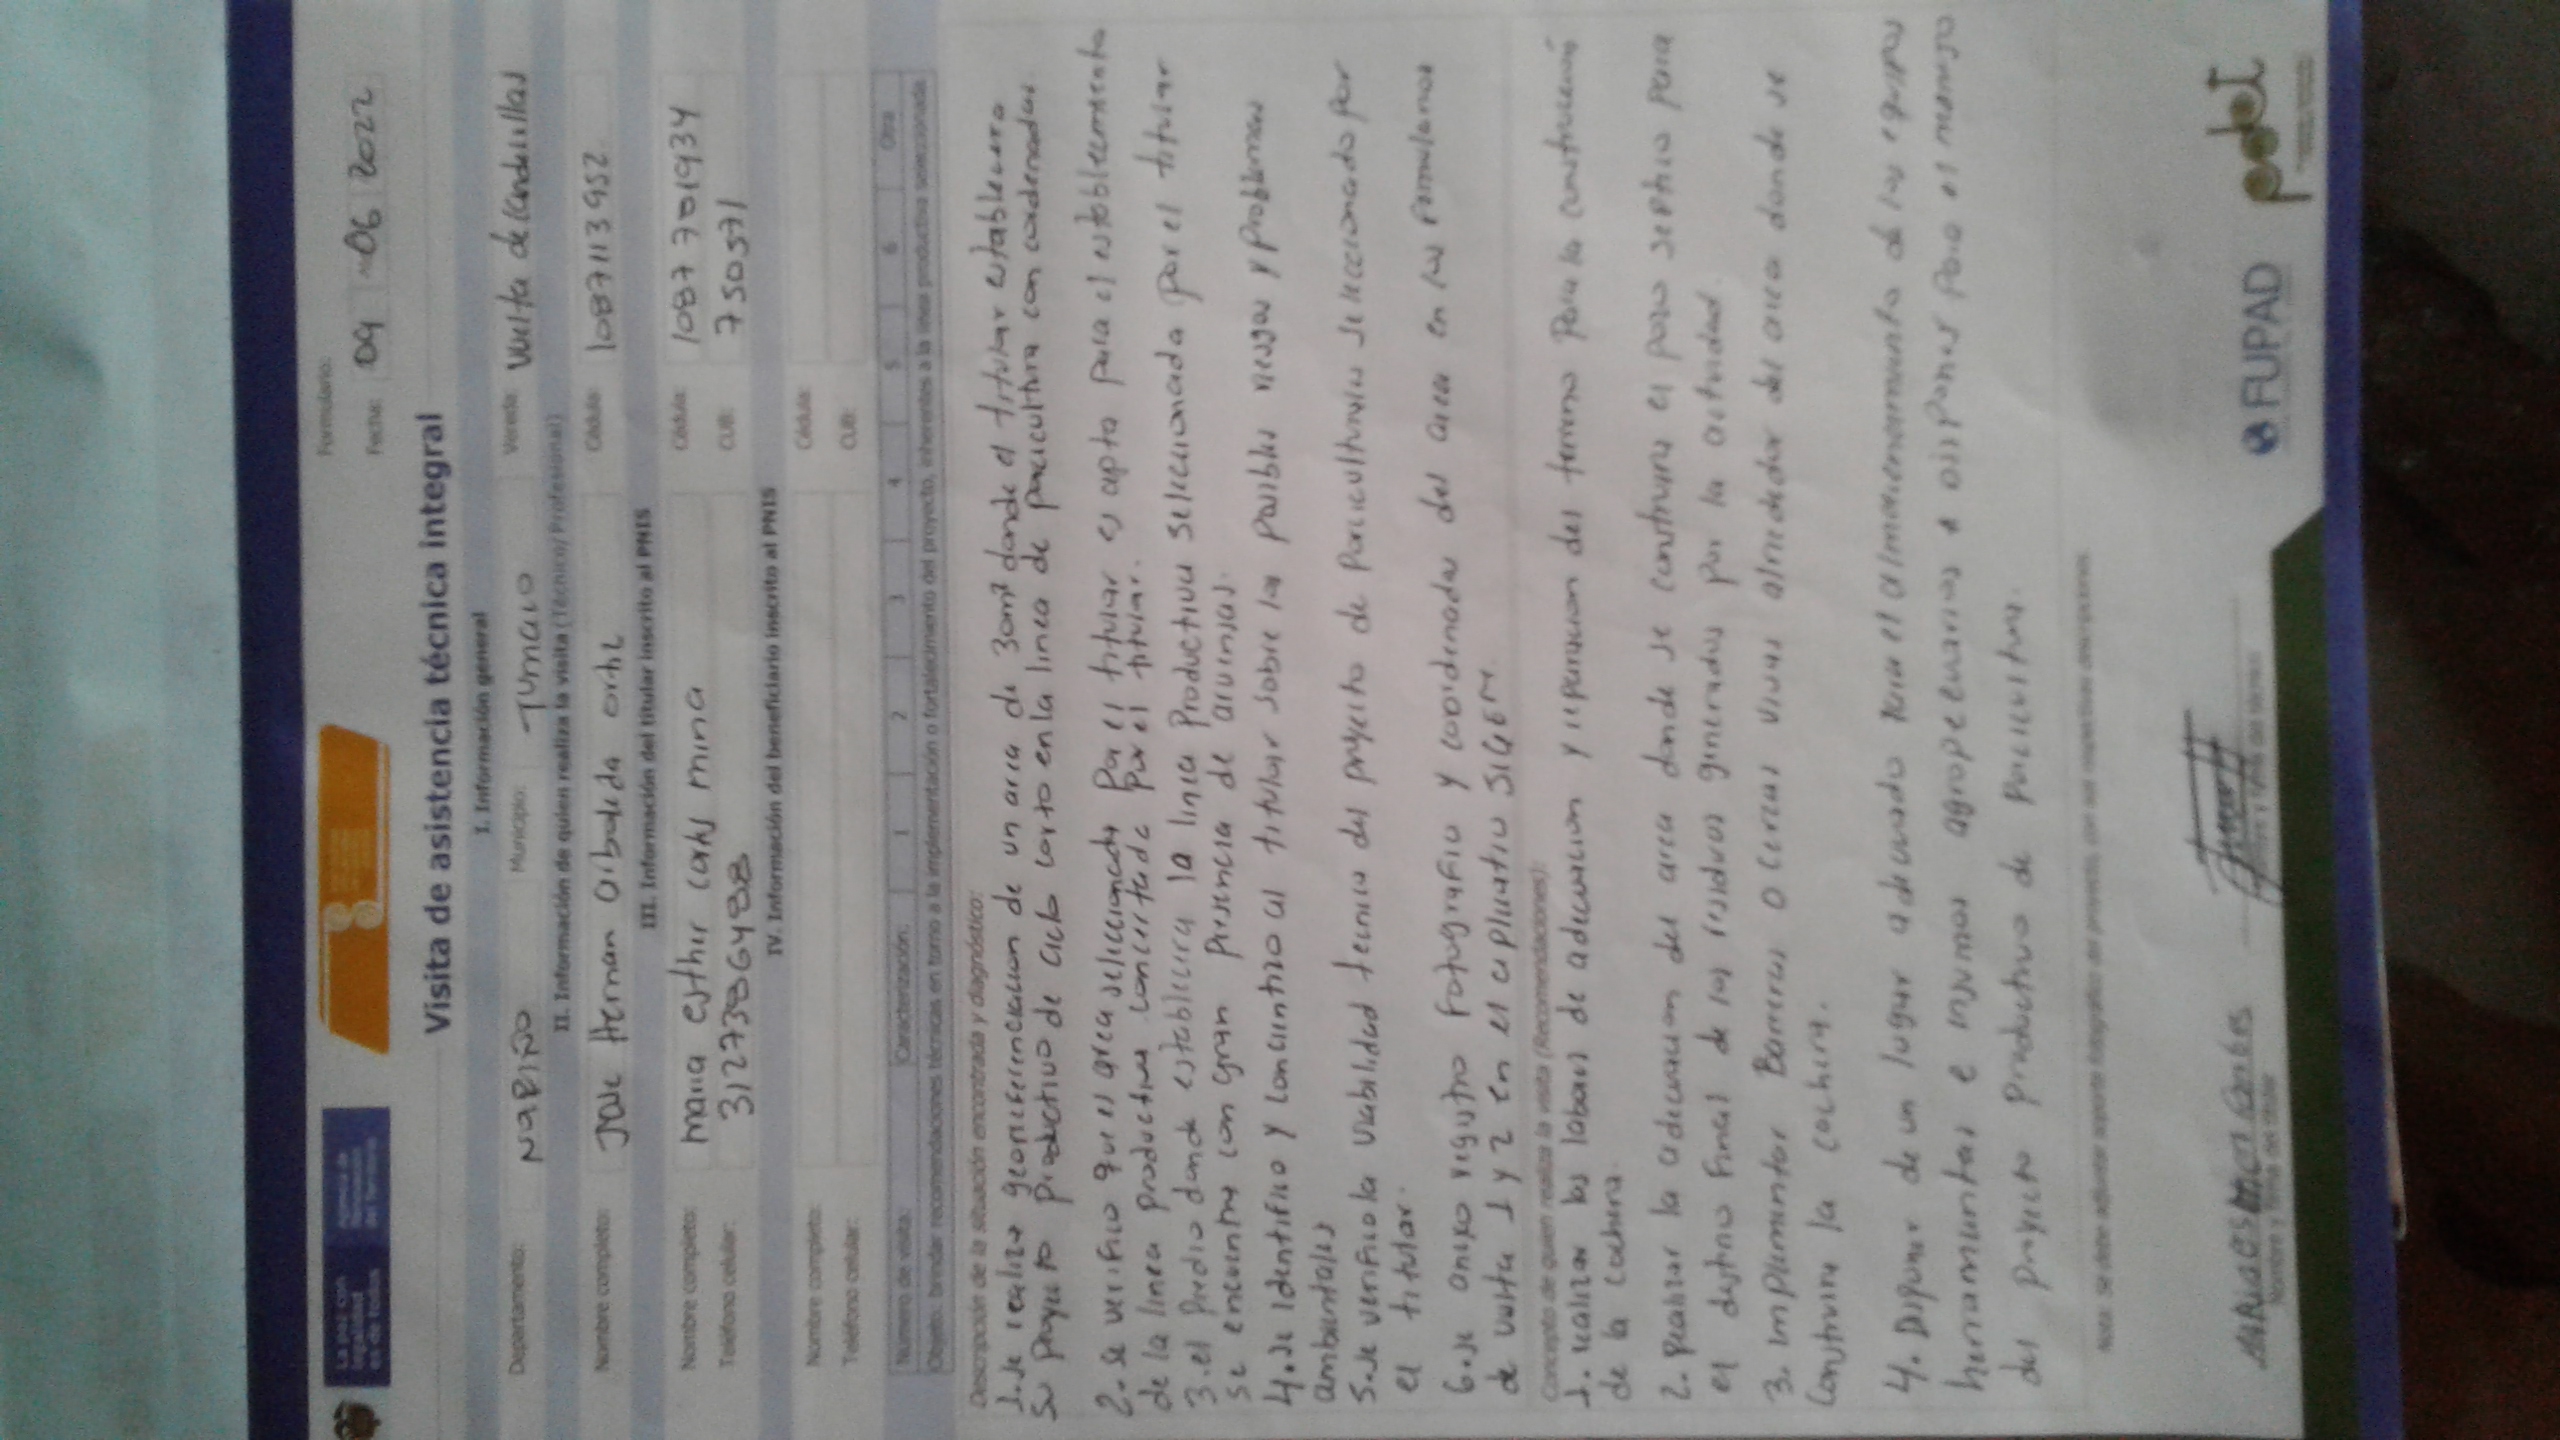 La paz con
legalidad
es de todos
Agencia de
Renovación
del Territorio
Formulario:
Fecha: 09 06 2022
Visita de asistencia técnica integral
I. Información general
Departamento: NARIÑO Municipio: TUMACO Vereda: Vuelta de candelillas
II. Información de quien realiza la visita (Técnico/ Profesional)
Nombre completo: Jose Hernan arboleda ortiz Cédula: 1087113952
III. Información del titular inscrito al PNIS
Nombre completo: maria esther cortes mina Cédula: 1087701934
Teléfono celular: 3127386488 CUB: 750571
IV. Información del beneficiario inscrito al PNIS
Nombre completo: Cédula:
Teléfono celular: CUB:
Número de visita: Caracterización: 1 2 3 4 5 6 Otra
Objeto: brindar recomendaciones técnicas en torno a la implementación o fortalecimiento del proyecto, inherentes a la línea productiva seleccionada.
Descripción de la situación encontrada y diagnóstico:
1. se realizo georeferenciacion de un area de 30m² donde el titular establecera
su proyecto productivo de ciclo corto en la linea de porcicultura con cordenadas.
2. se verifico que el area seleccionada por el titular es apta para el establecimiento
de la linea productiva concertada por el titular.
3. el predio donde establecera la linea productiva seleccionada por el titular
se encuentra con gran presencia de arvenses.
4. se identifico y concientizo al titular sobre los posibles riesgos y problemas
ambientales
5. se verifico la viabilidad tecnica del proyecto de Porcicultura seleccionado por
el titular.
6. se anexo registro fotografico y coordenadas del area en los formularios
de visita 1 y 2 en el aplicativo SIGEM.
Concepto de quien realiza la visita (Recomendaciones):
1. realizar las labores de adecuacion y reparacion del terreno para la construcción
de la cochera.
2. Realizar la adecuacion del area donde se construira el pozo septico para
el destino final de los residuos generados por la actividad.
3. implementar Barreras o cercas vivas alrededor del area donde se
construira la cochera.
4. Disponer de un lugar adecuado para el almacenamiento de los equipos
herramientas e insumos agropecuarios a disponer para el manejo
del proyecto productivo de porcicultura.
Nota: Se debe adjuntar soporte fotográfico del proyecto, con sus respectivas descripciones.
MARIA ESther Cortes
Nombre y firma del titular
Nombre y firma del técnico
FUPAD
pdet